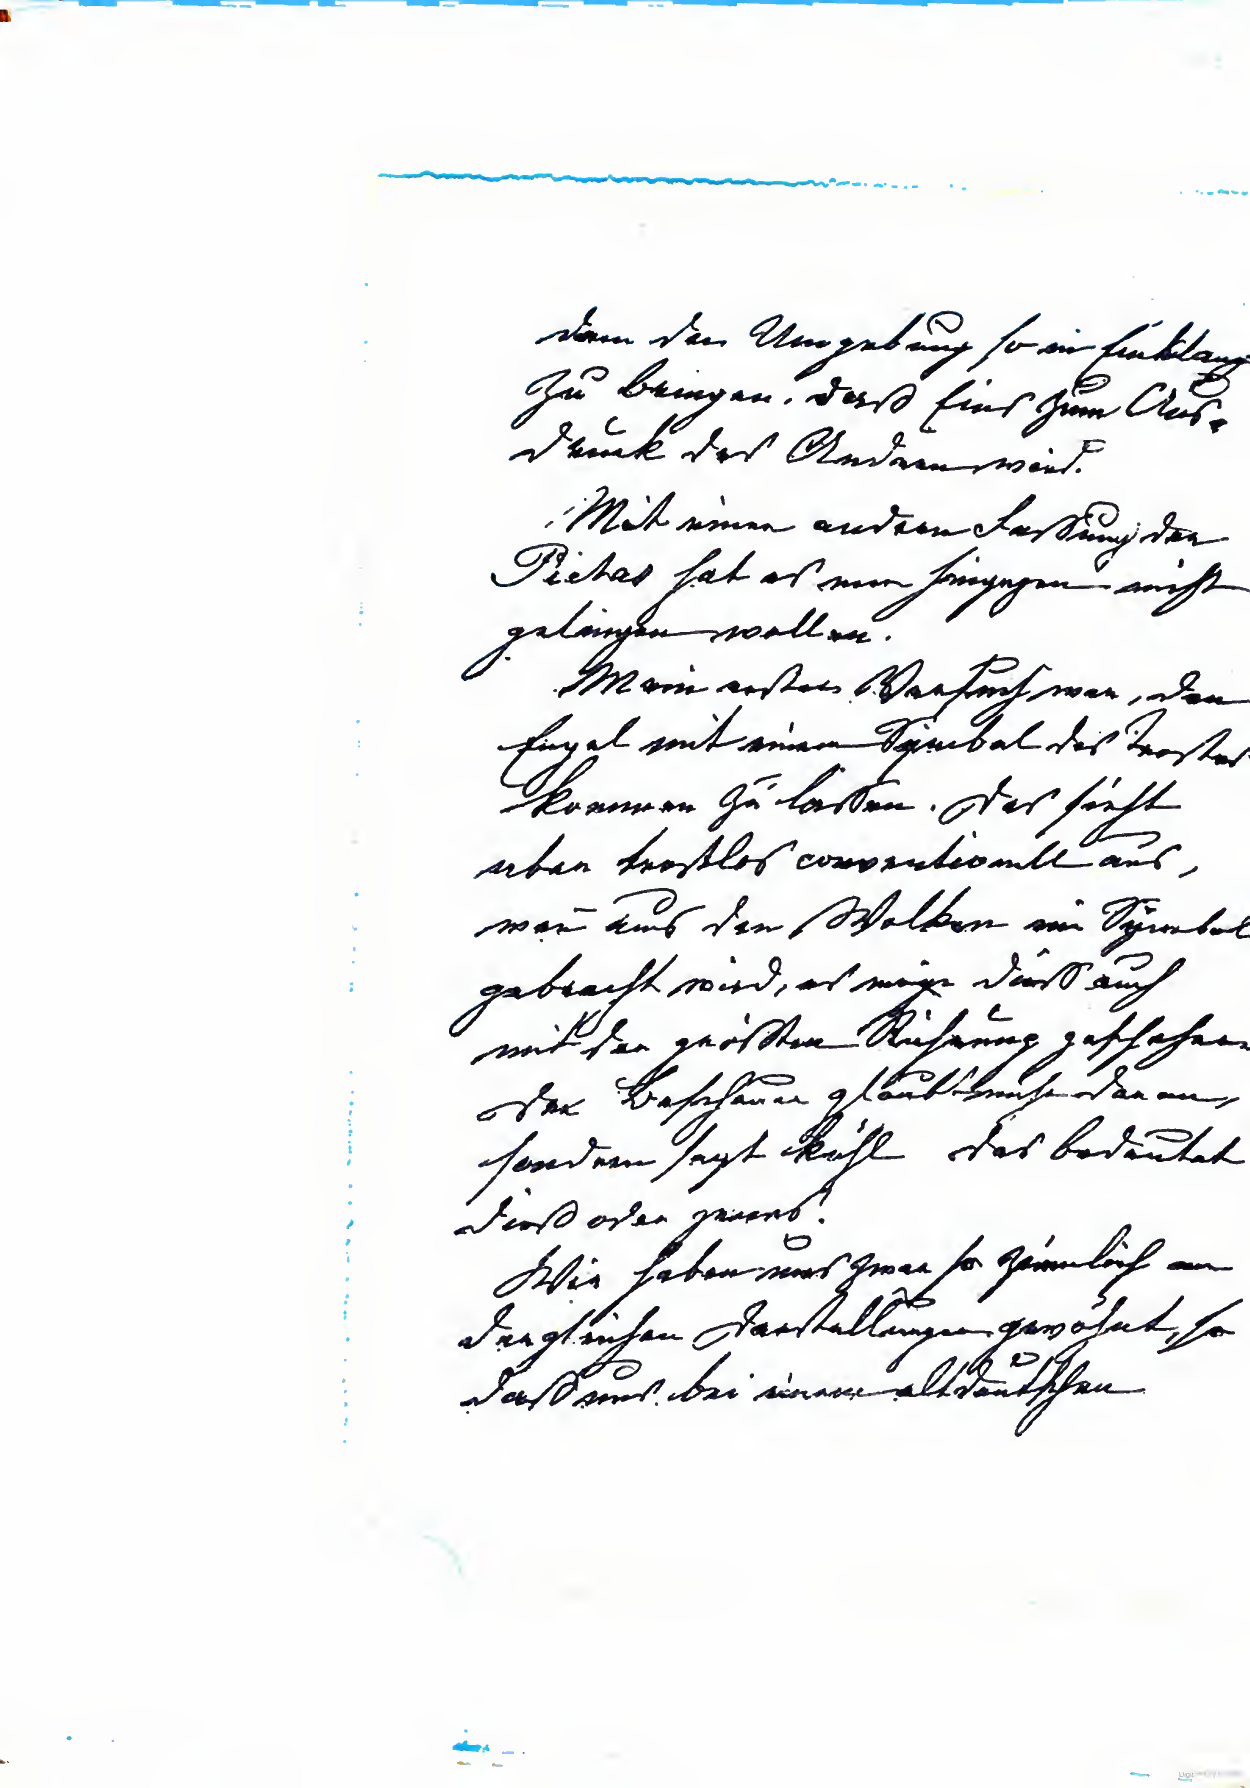 dem der Umgebung so in Einklang
zu bringen, daß Eins zum Aus-
druck des Anderen wird.
Mit einer andern Fassung der
Pietas hat es nun hingegen nicht
gelingen wollen.
Mein erster Versuch war, den
Engel mit einem Symbol des Trostes
kommen zu lassen. Das sieht
aber trostlos conventionell aus,
wenn aus den Wolken ein Symbol
gebracht wird, es möge dieß auch
mit der größten Rührung geschehen
der Beschauer glaubt nicht daran,
sondern sagt kühl das bedeutet
dieß oder jenes!
Wir haben uns zwar so ziemlich an
dergleichen Darstellungen gewöhnt, so
daß uns bei einem altdeutschen